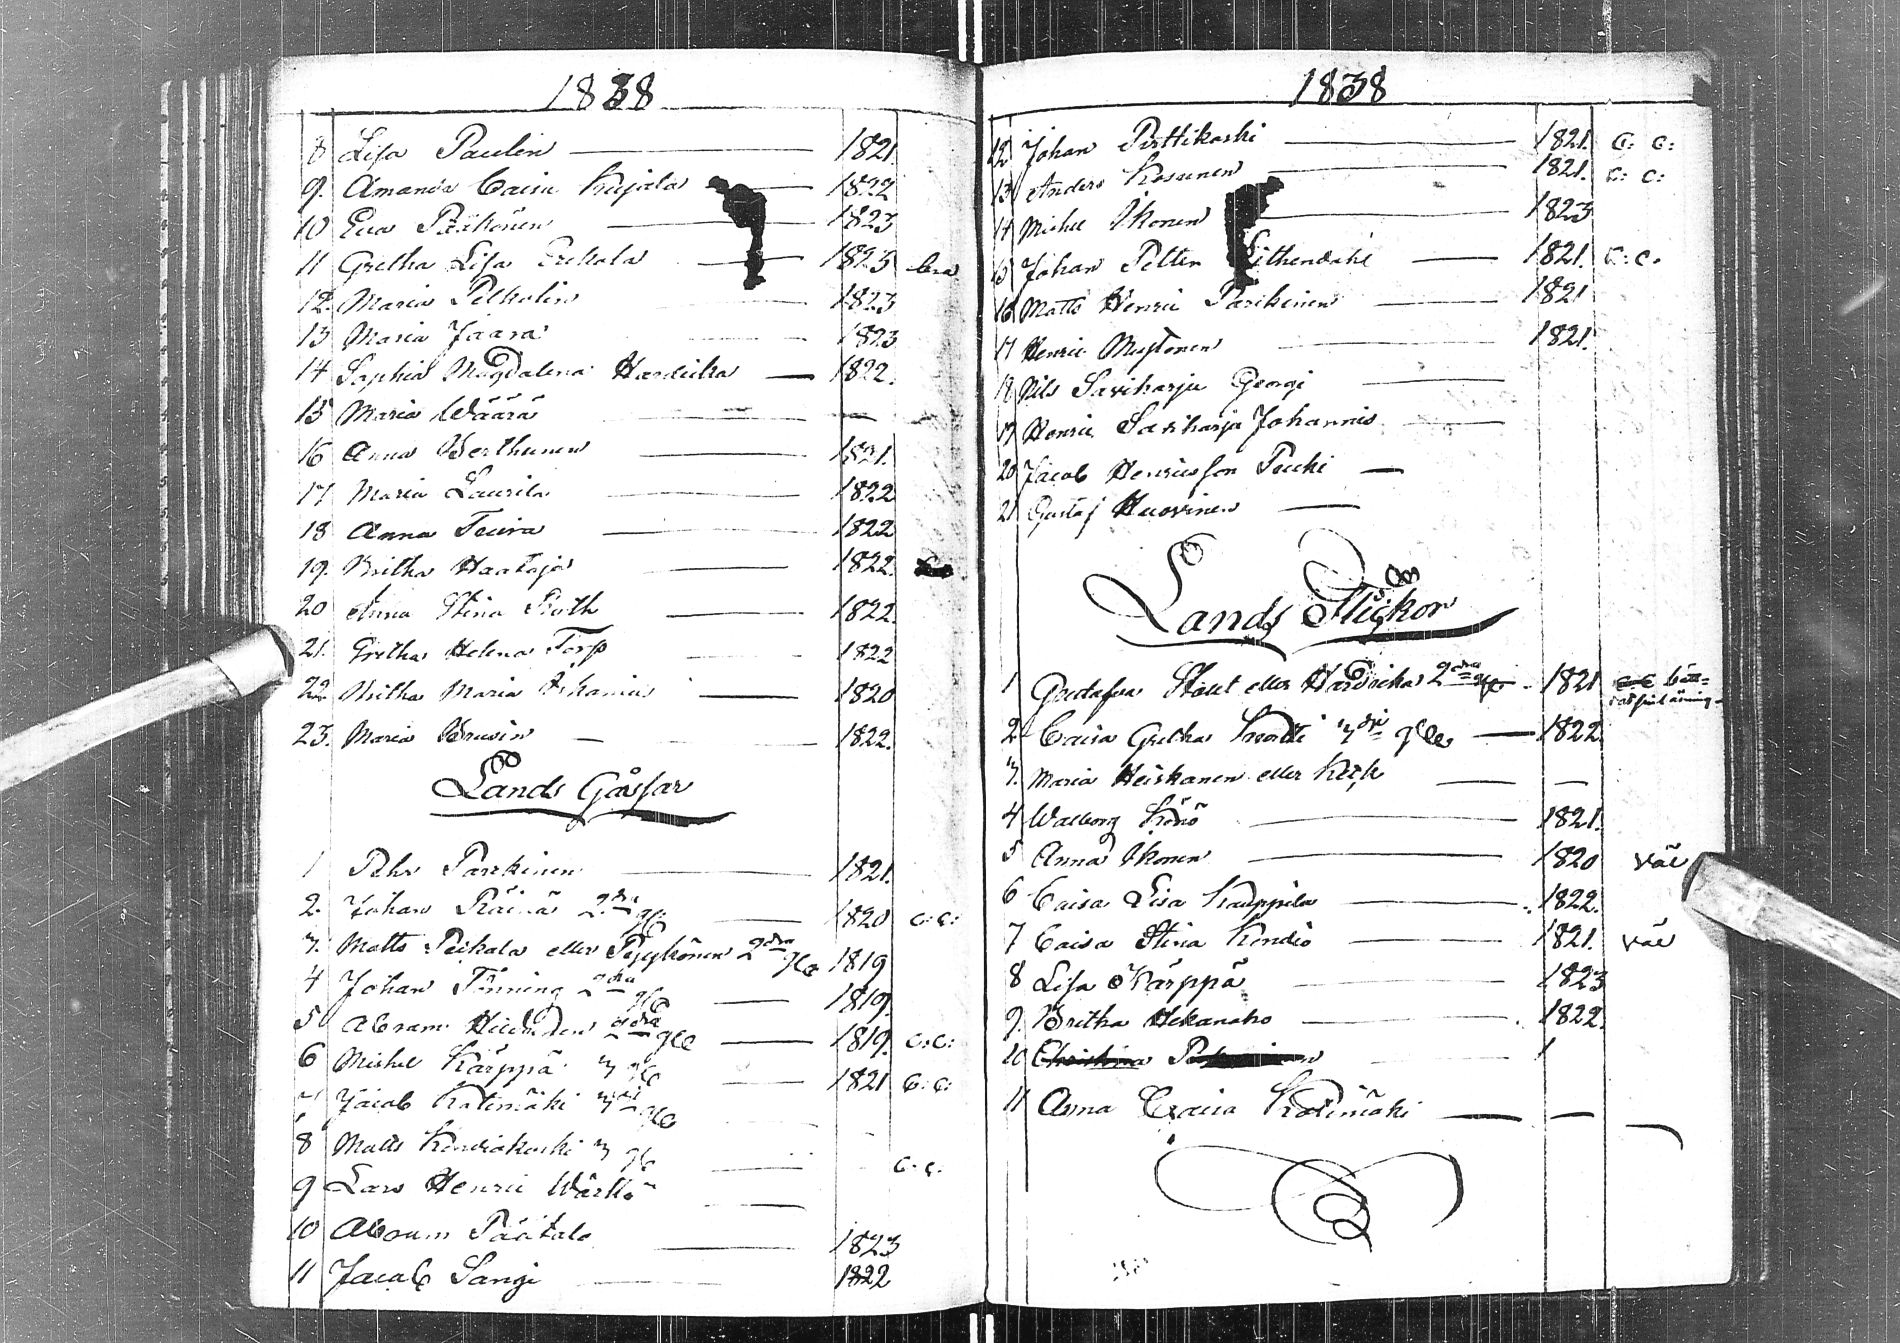 1838
8 Lisa Paulin 1821
9. Amanda Caisa Kujala 1822
10 Eva Pääkönen 1823
11 Gretha Lisa 1823 bra
12. Maria Pelkolin 1823
13 Maria Jaara 1823
14 Sophia Magdalena Hardicka 1822.
15 Maria Wäärä —
16 Anna Berthunen 1821.
17 Maria Laurila 1822
18 Anna Teura 1822
19. Britha Haataja 1822.
20 Anna Stina Roth 1822.
21. Gretha Helena Torp 1822
22 Britha Maria 1820
23. Maria Bruwin 1822.
Lands Gåssar
1 Pehr Parkinen 1821.
2. Johan Räinä 2dra gg 1820 C: C:
3. Matts Pelkala eller 2dra gg 1819
4 Johan Tönning 2dra gg 1819.
5 Abram 2dra gg 1819. C: C:
6 Michel Kärppä 3 gg 1821 C: C:
7 Jacob Kotimäki 3dje gg
8 Matts Kondiakoski 3 gg C. C.
9 Lars Henric Wärttö
10 Abram Päätalo 1823
11 Jacob Sangi 1822
1838
12 Johan Pirttikoski 1821. C: C:
13 Anders Kosunen 1821. C: C:
14 Michel Ikonen 1823
15 Johan Petter Lithendahl 1821. C: C.
16 Matts Henric Parikinen 1821
17 Henric Mustonen 1821.
18 Nils Saviharju Georgi
19 Henric Saviharju Johannis
20 Jacob Henricsson Pecki
21 Gustaf Huovinen
Lands Flickor
1 Gustafva Stålt eller Hardicka 2dra gg 1821
2 Caisa Gretha 3dje gg 1822.
3. Maria Heiskanen eller —
4 Walborg Könö 1821.
5 Anna Ikonen 1820 väl
6 Caisa Lisa Kauppila 1822.
7 Caisa Stina Kondio 1821. väl
8 Lisa Kärppä 1823
9. Britha Hekanaho 1822.
10 Christina
11 Anna Caisa Kotimäki —